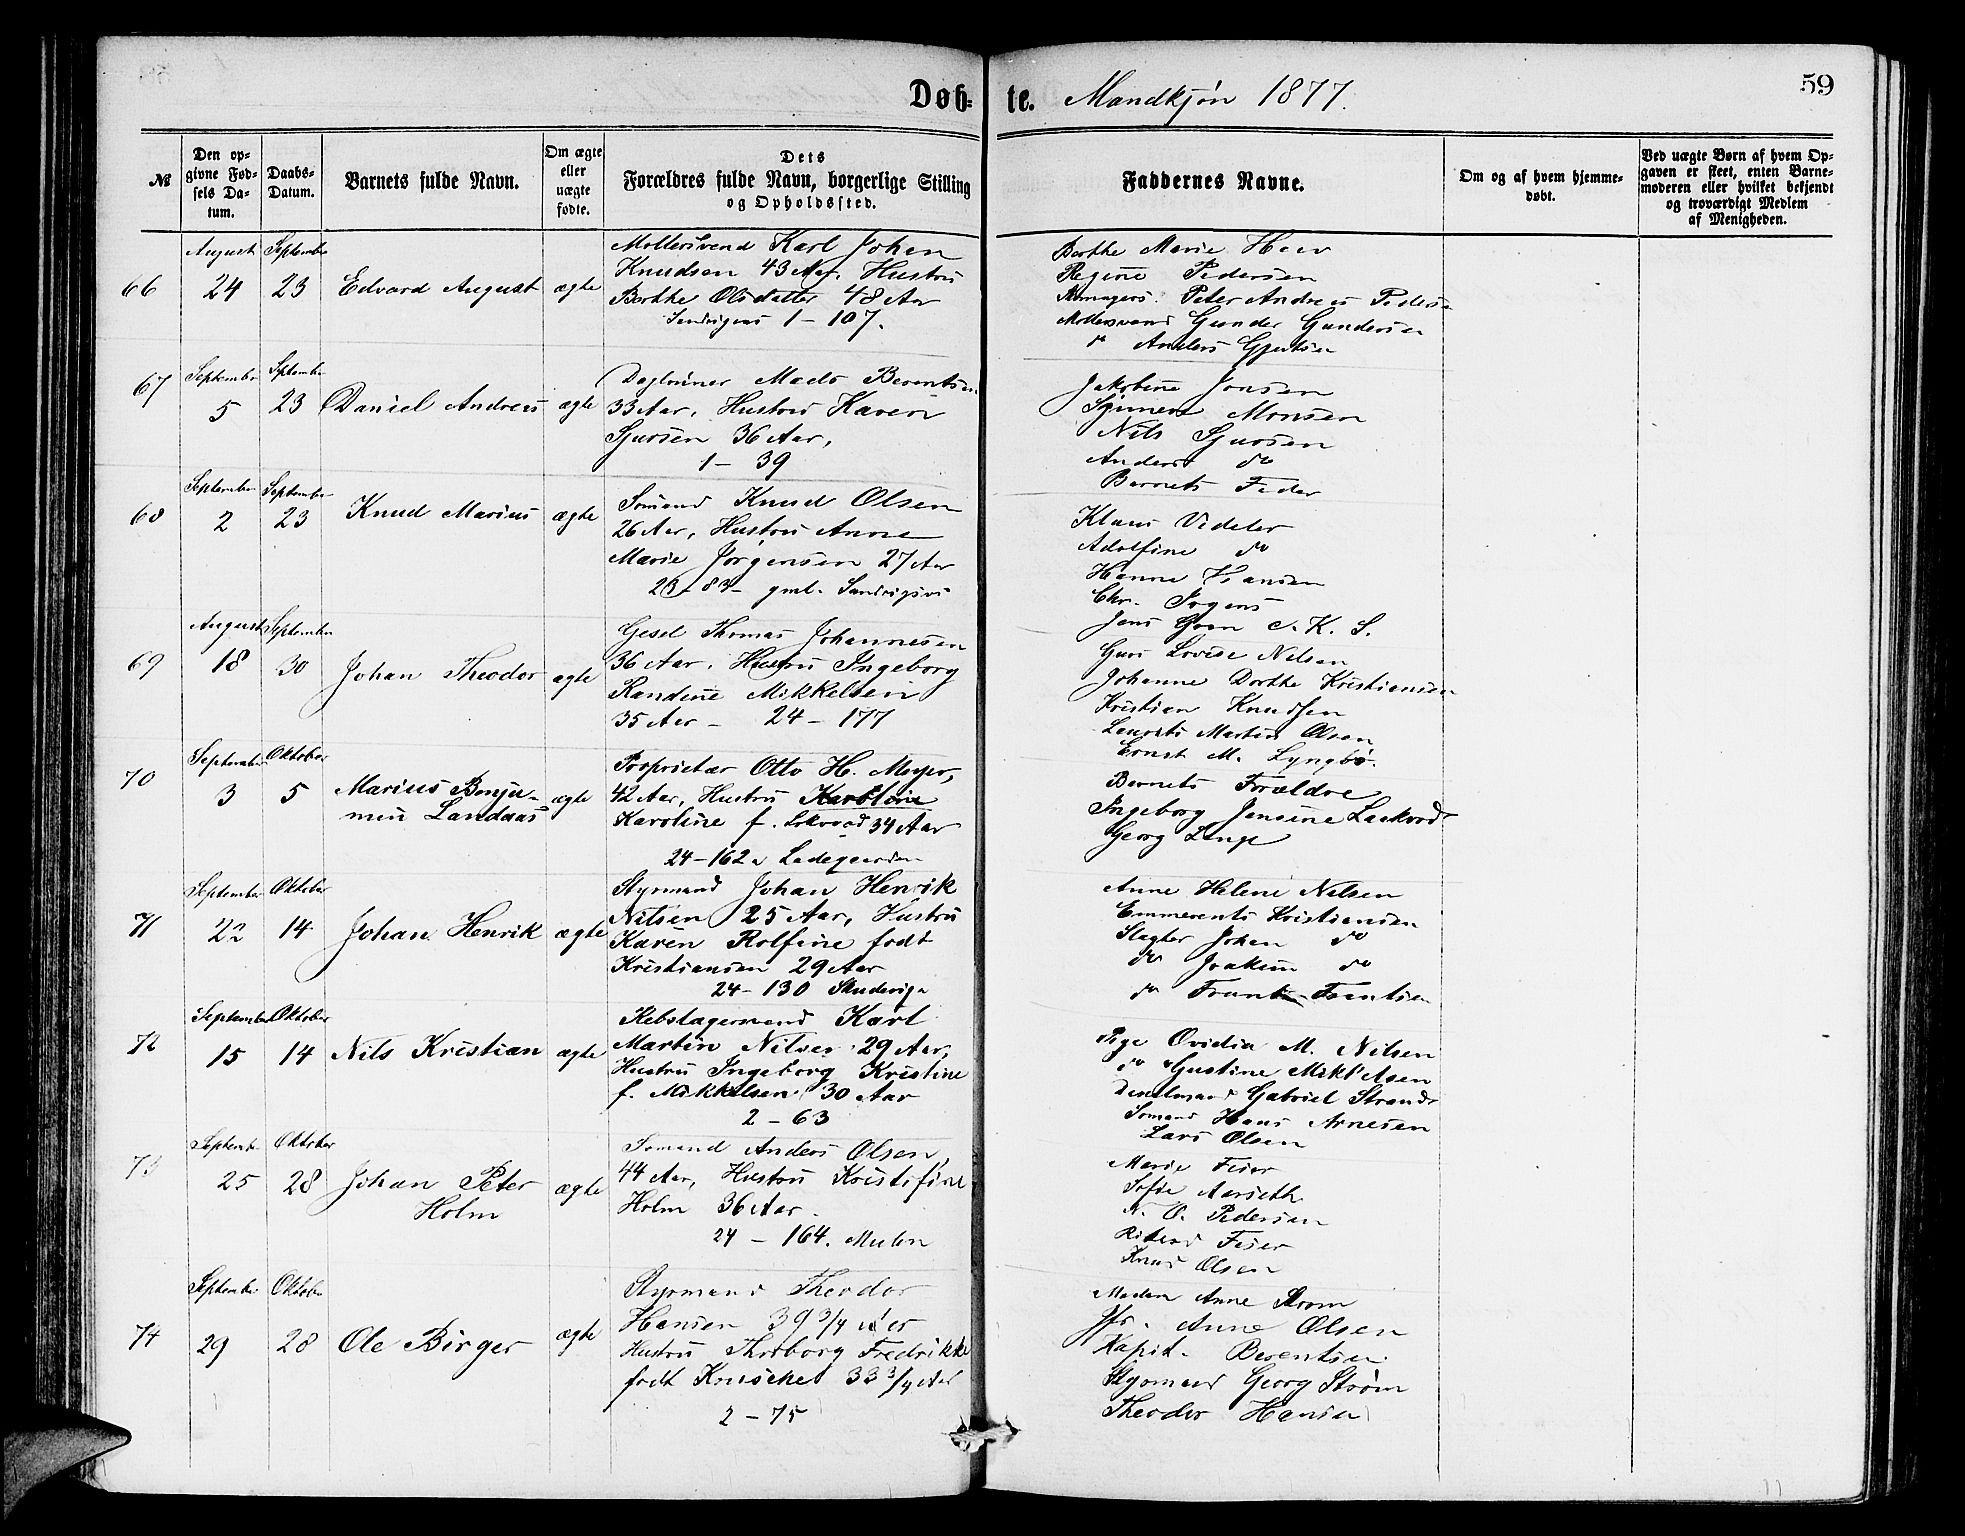 Døb-te. Mandkjøn 1877.
59
№
Den op-
givne Fød-
sels Da-
tum.
Daabs-
Datum.
Barnets fulde Navn.
Om ægte
eller
uægte
fødte.
Dets
Forældres fulde Navn, borgerlige Stilling
og Opholdssted.
Faddernes Navne.
Om og af hvem hjemme-
døbt.
Ved uægte Børn af hvem Op-
gaven er skeet, enten Barne-
moderen eller hvilket bekjendt
og troværdigt Medlem
af Menigheden.
66
August
24
September
23
Edvard August
ægte
Møllersvend Karl Johan
Knudsen 43 Aar, Hustru
Berthe Olsdatter 48 Aar
1 - 107.
Berthe Marie
Regine Pedersen
Peter Andreas Peders
Møllersvend Gunder Gundersen
do Anders Gjertsen
67
September
5
September
23
Daniel Andreas
ægte
Daglönner Mads Berentsen
33 Aar, Hustru Karen
Sjursen 36 Aar,
1 - 39
Jakobine Jonsen
Monsen
Nils Sjursen
Anders do
Barnets Fader
68
September
2
September
23
Knud Marius
ægte
Sömand Knud Olsen
26 Aar, Hustru Anne
Marie Jørgensen 27 Aar
23 - 83 - gml. Sandvigsvei
Klaus
Adolfine do
Hanne Hansen
Chr.
Jens
69
August
18
September
30
Johan Theodor
ægte
Gesel Thomas Johannesen
36 Aar, Hustru Ingeborg
Randine Mikkelsen
35 Aar - 24 - 177
Lovise Nilsen
Johanne Dorthe Kristiansen
Kristian Knudsen
Laurits Martin Olsen
Ernst M. Lyngbö.
70
September
3
Oktober
5
Marius Benja-
min Landaas
ægte
Proprietær Otto H. Meyer,
42 Aar, Hustru Karoline
Karoline f. 34 Aar
24 - 162 a Ladegaarden
Barnets Forældre
Ingeborg Jensine
Georg Lange
71
September
22
Oktober
14
Johan Henrik
ægte
Styrmand Johan Henrik
Nilsen 25 Aar, Hustru
Karen Rolfine født
Kristiansen 29 Aar
24 - 130 Skudevige
Anne Helene Nilsen
Emmerents Kristiansen
Slagter Johan do
do Joakim do
do Frants Frantsen
72
September
15
Oktober
14
Nils Kristian
ægte
Rebslagersvend Karl
Martin Nilsen 29 Aar,
Hustru Ingeborg Kristine
f. Mikkelsen 30 Aar
2 - 63
Pige Ovidia M. Nilsen
do Gustine Mikkelsen
Gabriel Strand
Sömand Hans Arnesen
Lars Olsen
73
September
25
Oktober
28
Johan Peter
Holm
ægte
Sömand Anders Olsen,
44 Aar, Hustru Kristofine
Holm 36 Aar.
24 - 164. Mulen
Marie
Sofie
N. O. Pedersen
Knud Olsen
74
September
29
Oktober
28
Ole Birger
ægte
Styrmand Theodor
Hansen 39 3/4 Aar
Hustru Thorborg Fredrikke
født 33 3/4 Aar
2 - 75
Madam Anne Strøm
Jfr. Anne Olsen
Kapit. Berentsen
Styrmand Georg Strøm
Theodor Hansen